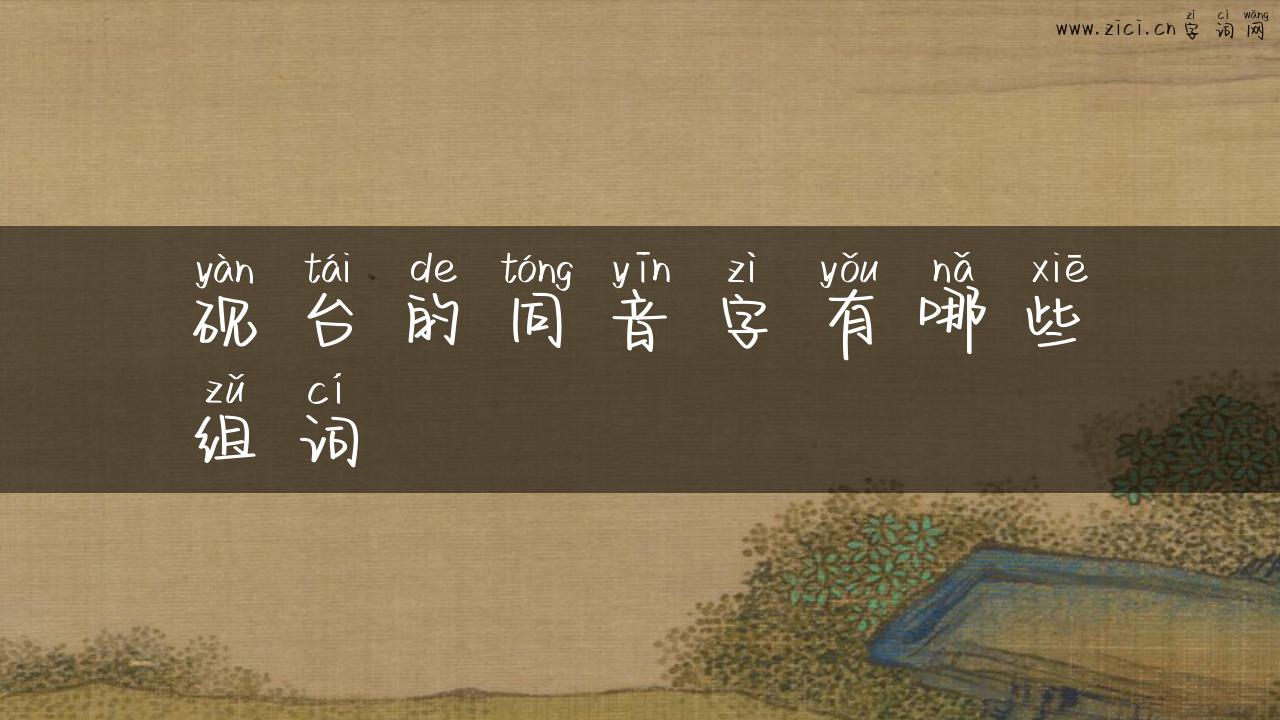 zì cí wǎng
www.zici.cn字词网
yàn tái de tóng yīn zì yǒu nǎ xiē
砚台的同音字有哪些
zǔ cí
组词